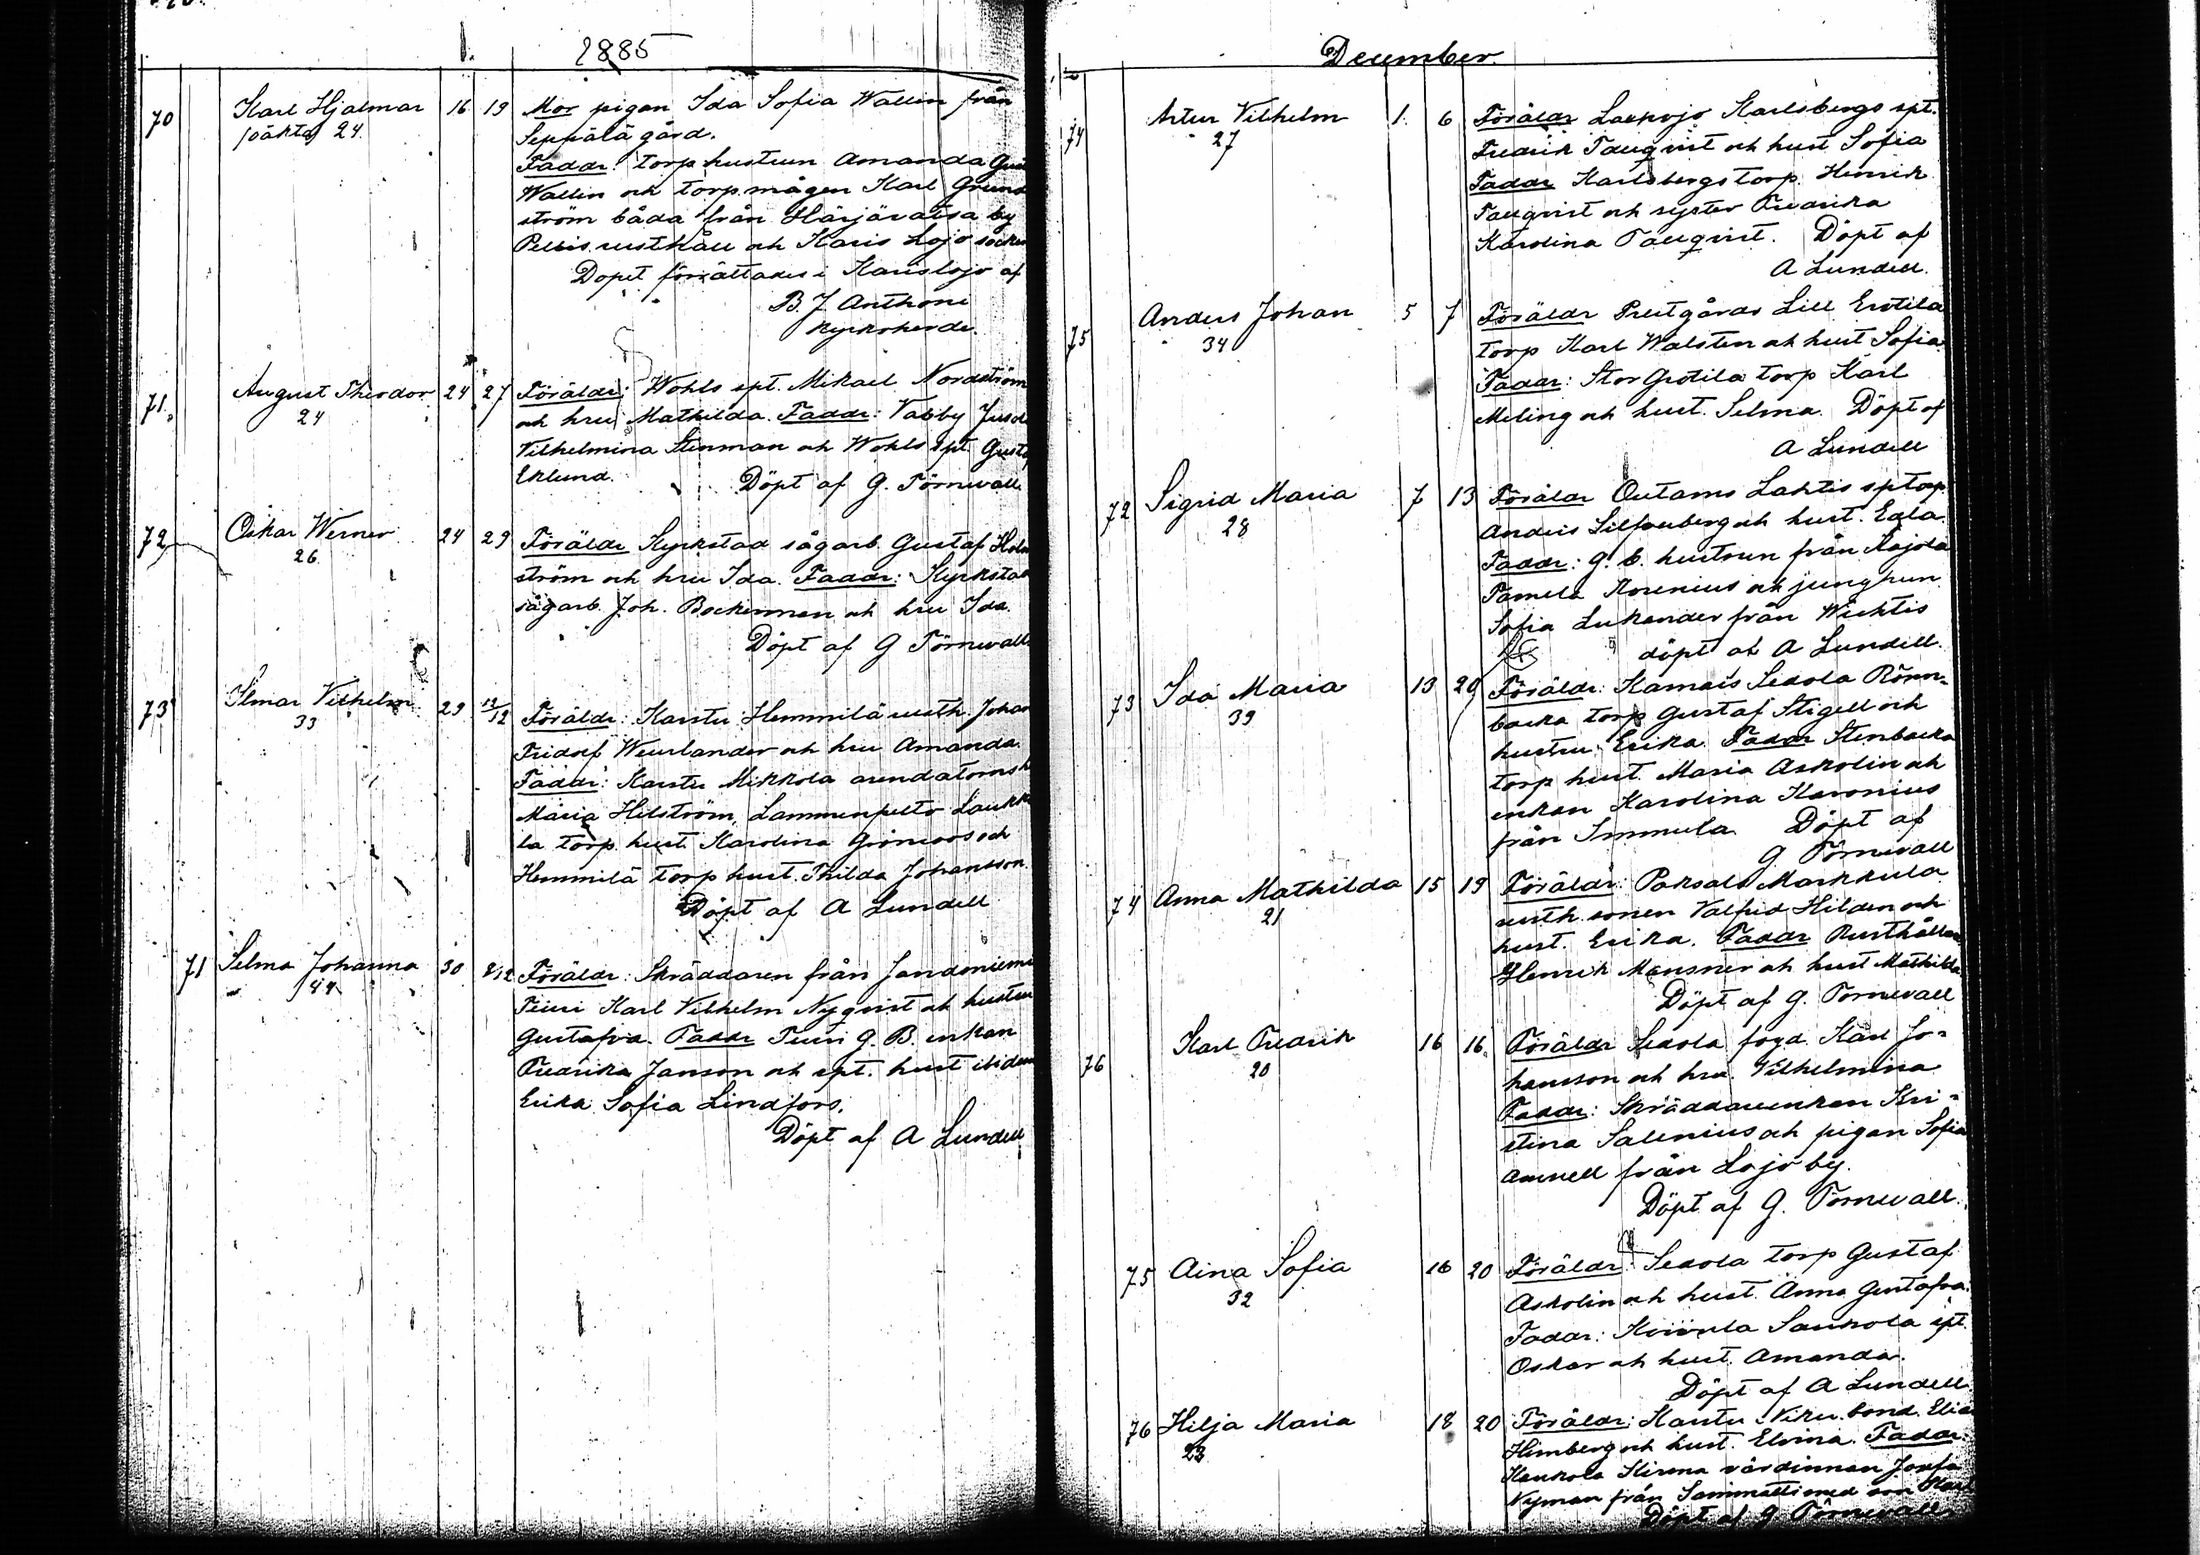 1885
70 Karl Hjalmar 16 19 Mor pigan Ida Sofia Wallin från
oäkta 24. Seppälä gård.
Faddr: torp hustrun Amanda
Wallin och torp. mågen Karl Grund
ström båda från Härjärvatsa by
rusthåll och Karis Lojo socken
Dopet förrättades i Karislojo af
B. J. Anthoni
Kyrkoherde.
71. August Theodor 24 27 Föräldr: Wohls spt. Mikael Nordström
24 och hru Mathilda. Faddr: Vabby
Vilhelmina Stenman och Wohls spt. Gustaf
Eklund. Döpt af G. Törnevall
72 Oskar Werner 24 29 Föräldr Kyrkstad sågarb. Gustaf Holm
26 ström och hru Ida. Faddr: Kyrkstad
sågarb. Joh. Bockerman och hru Ida.
Döpt af G Törnevall
73 Ilmar Vilhelm 29 12/12 Föräldr: Karstu Hemmilä rusth. Johan
33 Fridolf Weurlander och hru Amanda.
Faddr: Karstu Mikkola arendatorns h
Maria Helström, Lammenpelto Laukk
la torp. hust. Karolina Grönroos och
Hemmilä torp hust. Thilda Johansson
Döpt af A Lundell
71 Selma Johanna 30 8/12 Föräldr: Skräddaren från Jandoniemi
44 Piuri Karl Vilhelm Nyqvist och hustru
Gustafva. Faddr G. B. enkan
Fredrika Janson och spt. hust ibidem
Erika Sofia Lindfors.
Döpt af A Lundell
December
74 Artur Vilhelm 1. 6 Föräldr Laxpojo Karlsbergs spt.
27 Fredrik Tauqvist och hust Sofia
Faddr Karlsbergs torp. Henrik
Tauqvist och syster Fredrika
Karolina Tauqvist. Döpt af
A Lundell.
75 Anders Johan 5 7 Föräldr Prestgårds Lill Erotila
34 torp Karl Walsten och hust Sofia.
Faddr: Stor Grotila torp Karl
Meling och hust. Selma. Döpt af
A Lundell
72 Sigrid Maria 7 13 Föräldr Outamo Lahtis sptorp
28 Anders Silfverberg och hust. Edla.
Faddr: G. b. hustrun från Kojola
Pamela Korenius och jungfrun
Sofia Lukander från Wichtis
döpt af A Lundell.
73 Ida Maria 13 20 Föräldr: Kamais Seddola Rönn-
39 backa torp Gustaf Stigell och
hustru Erika. Faddr Stenbacka
torp hust. Maria Askolin och
enkan Karolina Karonius
från Immula Döpt af
G. Törnevall
74 Anna Mathilda 15 19 Föräldr: Paksalo Markkula
21 rusth. sonen Valfrid Hilden och
hust. Erika. Faddr Rusthållar
Henrik Mansner och hust Mathilda
Döpt af G. Törnevall
76 Karl Fredrik 16 16. Föräldr Seddola fogd. Karl Jo-
20 hansson och hru. Vilhelmina
Faddr: Skräddarenkan Kri-
stina Salenius och pigan Sofia
Amnell från Lojo by.
Döpt af G. Törnevall.
75 Aina Sofia 16 20 Föräldr: Seddola torp Gustaf
32 Askolin och hust. Anna Gustafva.
Faddr: Koivula Sankola spt.
Oskar och hust. Amanda.
Döpt af A Lundell.
76 Hilja Maria 18 20 Föräldr: Karstu Niku bond. Elias
23 Himberg och hust. Elvina. Faddr:
Kaukola Kirma värdinnan Josefa
Nyman från Sammatti med son Karl
Döpt af G Törnevall